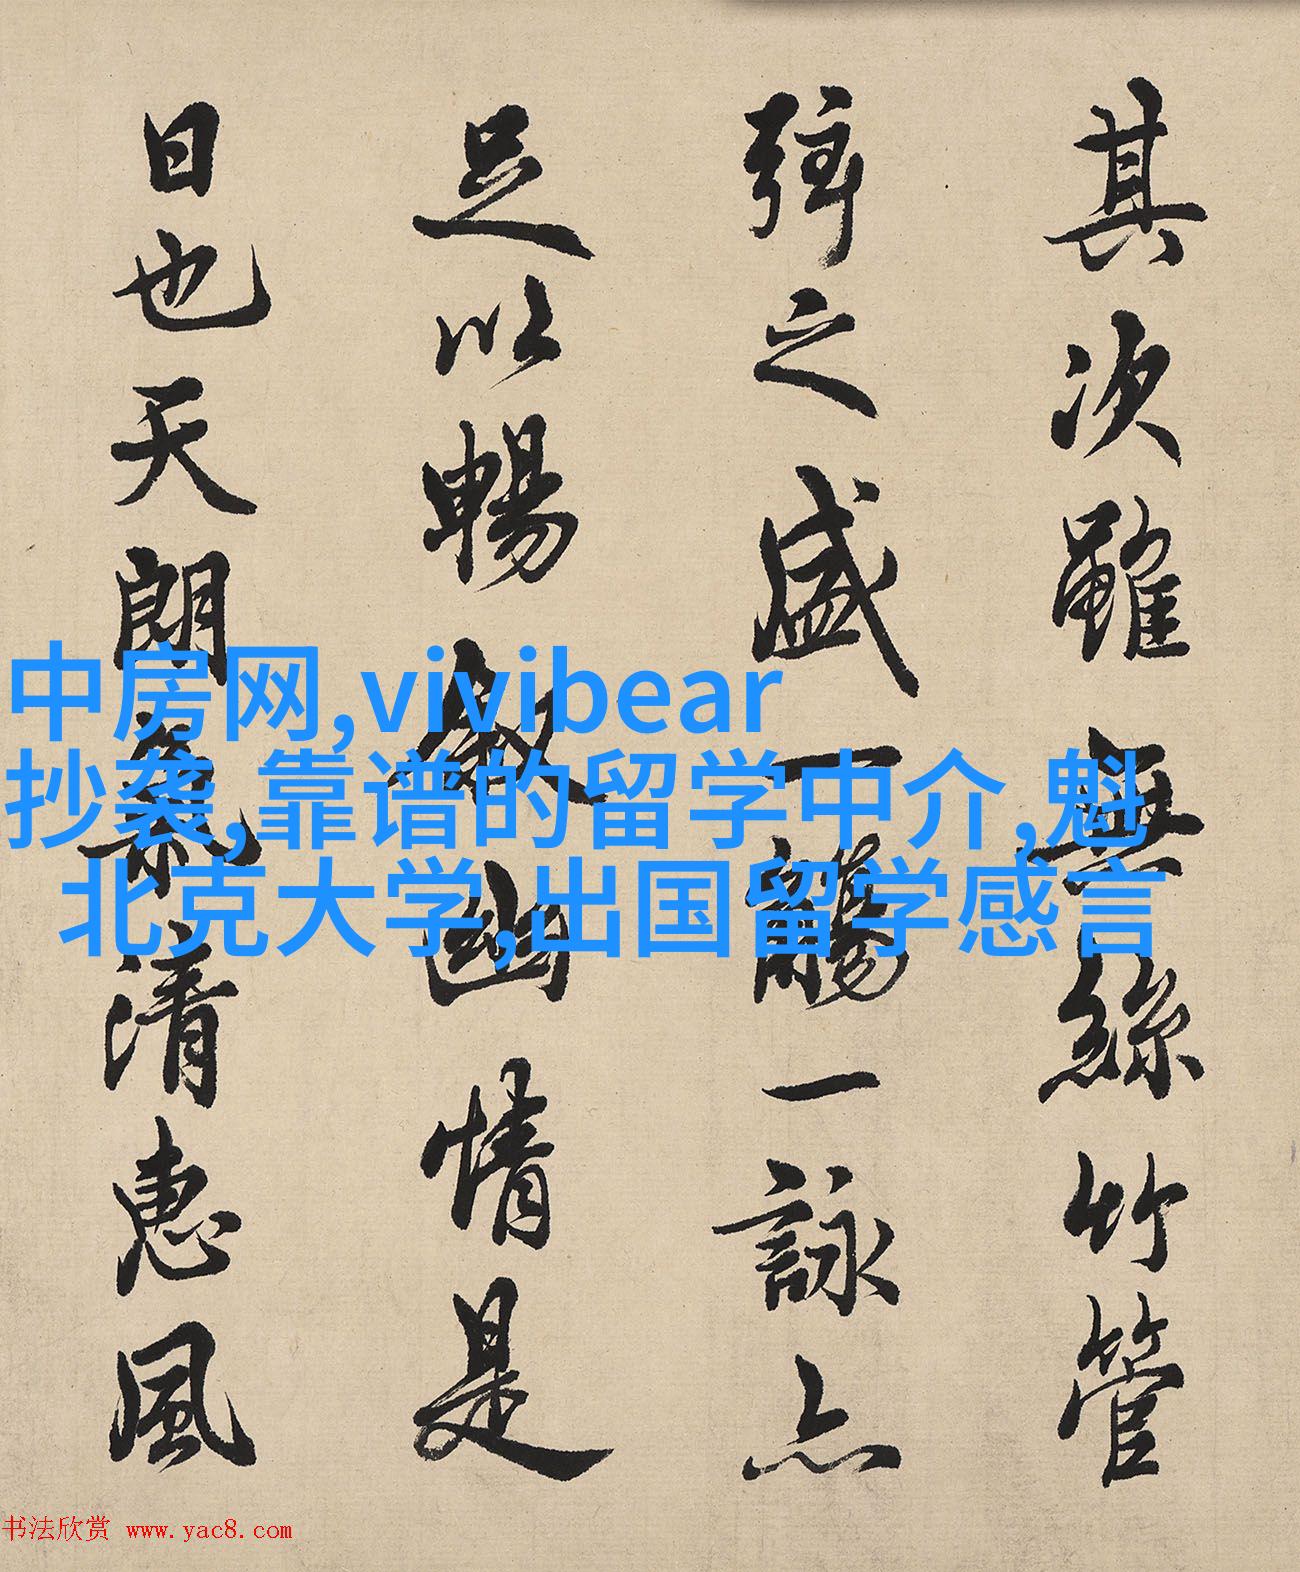 其次雖無絲竹管
弦之盛一觴一詠亦
足以暢敘幽情是
日也天朗氣清惠風
中房网,vivibear
抄袭,靠谱的留学中介,魁
北克大学,出国留学感言
书法欣赏 www.yac8.com